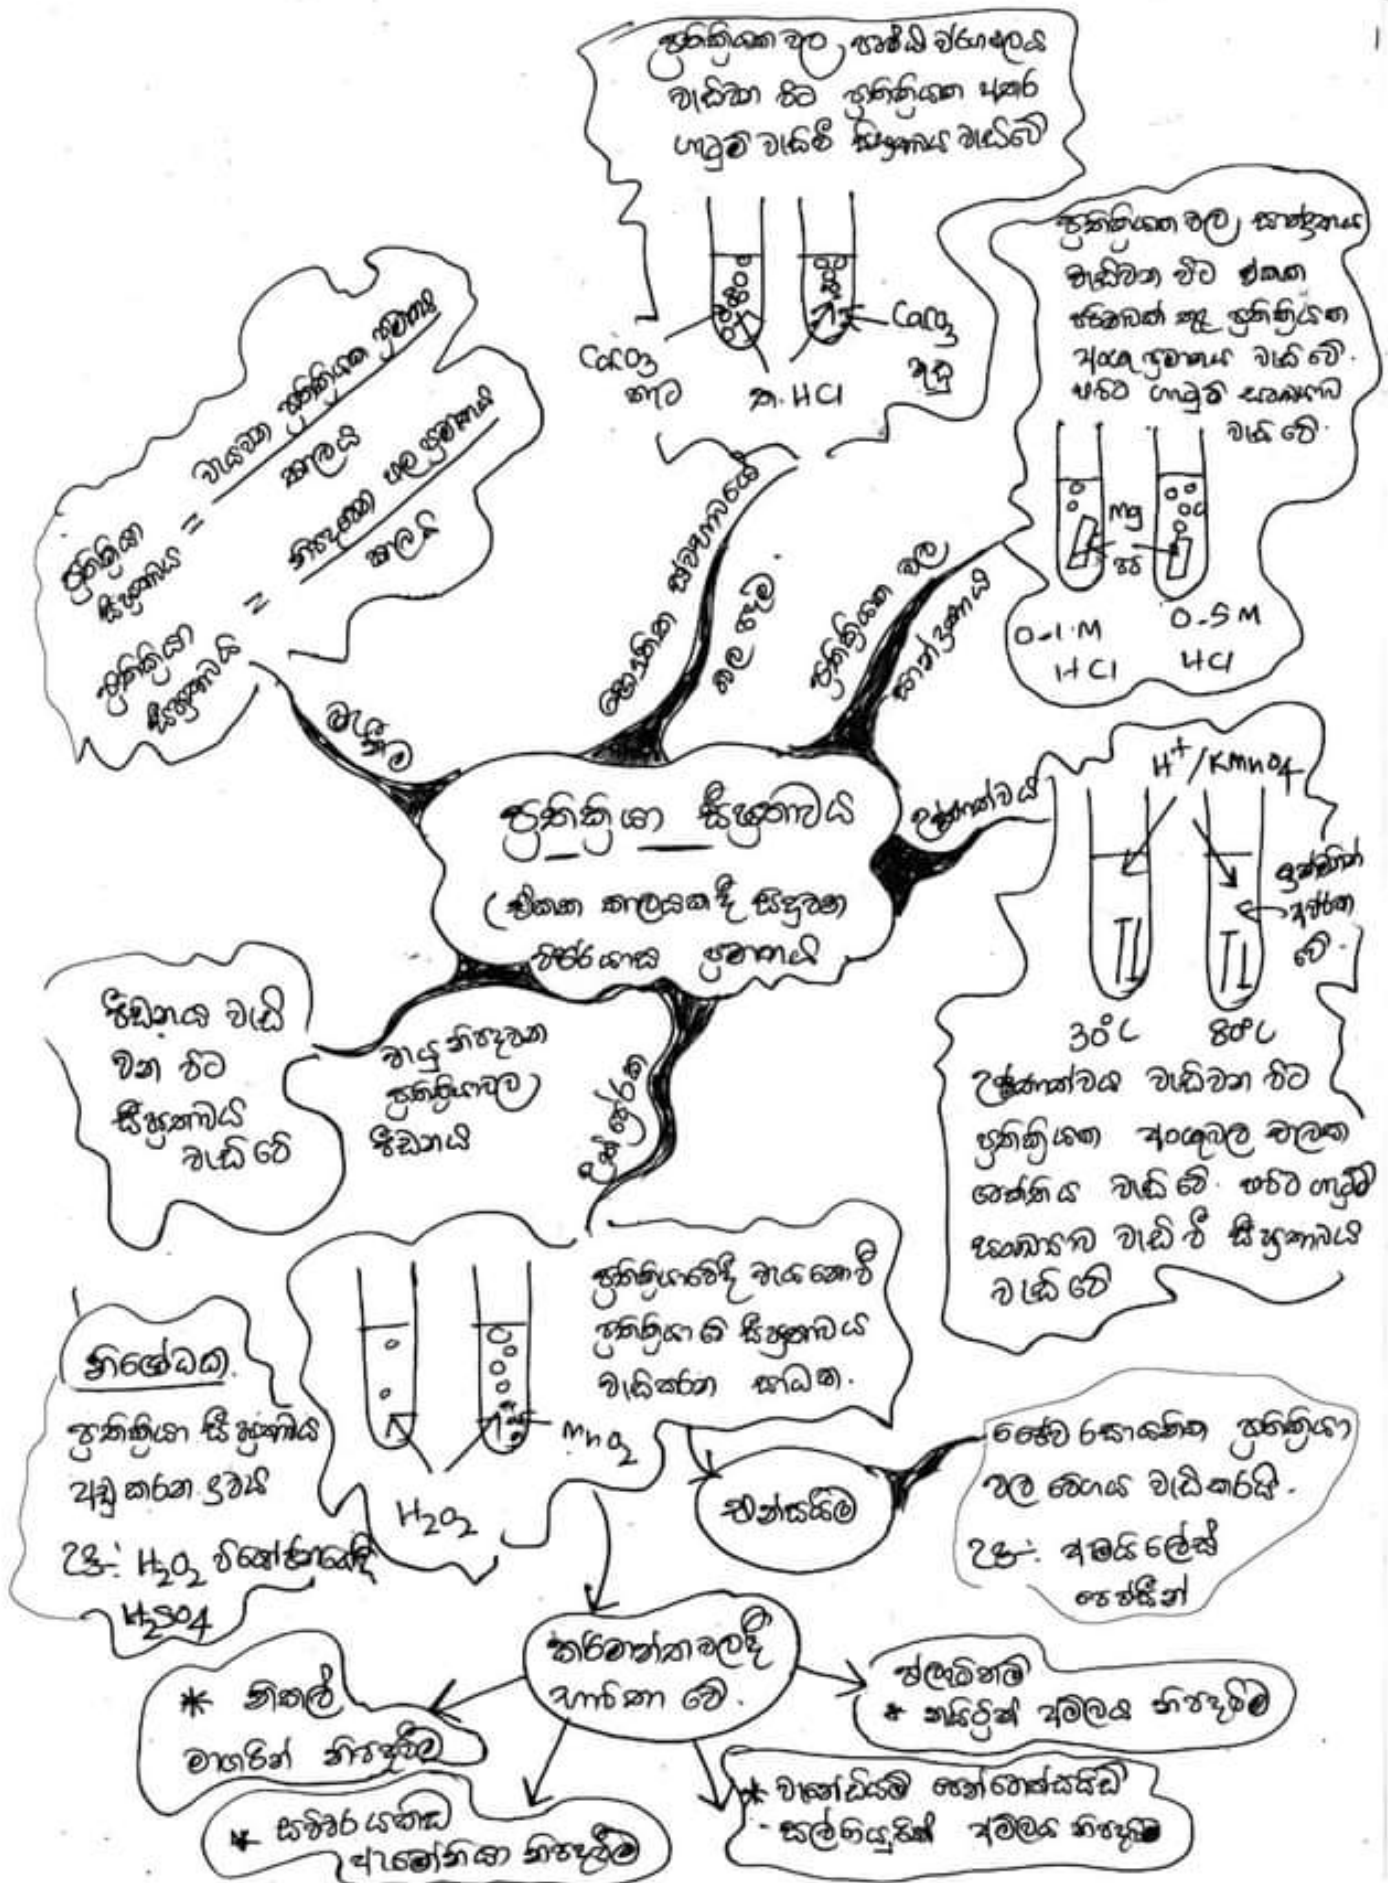 ප්‍රතික්‍රියක වල පෘෂ්ඨ වර්ගඵලය
වැඩිවන විට ප්‍රතික්‍රියක අතර
ගැටුම් වැඩිවී සීඝ්‍රතාවය වැඩිවේ
CaCO3
කැට
ත.HCl
CaCO3
කුඩු
ප්‍රතික්‍රියක වල සාන්ද්‍රණය
වැඩිවන විට ඒකක
පරිමාවක් තුල ප්‍රතික්‍රියක
අංශු ප්‍රමාණය වැඩි වේ.
එවිට ගැටුම් සංඛ්‍යාව
වැඩි වේ.
Mg
පටි
0-1.M
HCl
0-5M
HCl
ප්‍රතික්‍රියා
සීඝ්‍රතාවය
=
වැයවන ප්‍රතික්‍රියක ප්‍රමාණය
කාලය
ප්‍රතික්‍රියා
සීඝ්‍රතාවය
=
නිපදවන ඵල ප්‍රමාණය
කාලය
මැනීම
භෞතික ස්වභාවයේ
බල පෑම
ප්‍රතික්‍රියක වල
සාන්ද්‍රණය
උෂ්ණත්වය
ප්‍රතික්‍රියා සීඝ්‍රතාවය
(ඒකක කාලයකදී සිදුවන
විපර්යාස ප්‍රමාණය
H+/KMnO4
ඉක්මනින්
අවර්ණ
වේ.
30°C
80°C
උෂ්ණත්වය වැඩිවන විට
ප්‍රතික්‍රියක අංශුවල චාලක
ශක්තිය වැඩි වේ. එවිට ගැටුම්
සංඛ්‍යාව වැඩි වී සීඝ්‍රතාවය
වැඩි වේ
පීඩනය වැඩි
වන විට
සීඝ්‍රතාවය
වැඩි වේ
වායු නිපදවන
ප්‍රතික්‍රියාවල
පීඩනය
උත්ප්‍රේරක
ප්‍රතික්‍රියාවේදී වැය නොවී
ප්‍රතික්‍රියාවේ සීඝ්‍රතාවය
වැඩිකරන සාධක.
MnO2
H2O2
නිශේධක.
ප්‍රතික්‍රියා සීඝ්‍රතාවය
අඩු කරන ද්‍රව්‍ය
උදා:- H2O2 වියෝජනයේදී
H2SO4
එන්සයිම
ජෛව රසායනික ප්‍රතික්‍රියා
වල වේගය වැඩිකරයි.
උදා:- අමයිලේස්
පෙප්සීන්
කර්මාන්ත වලදී
භාවිතා වේ.
* නිකල්
මාගරින් නිපදවීම
* සවිවර යකඩ
ඇමෝනියා නිපදවීම
ප්ලැටිනම්
* නයිට්‍රික් අම්ලය නිපදවීම
* වැනේඩියම් පෙන්ටොක්සයිඩ්
- සල්ෆියුරික් අම්ලය නිපදවීම